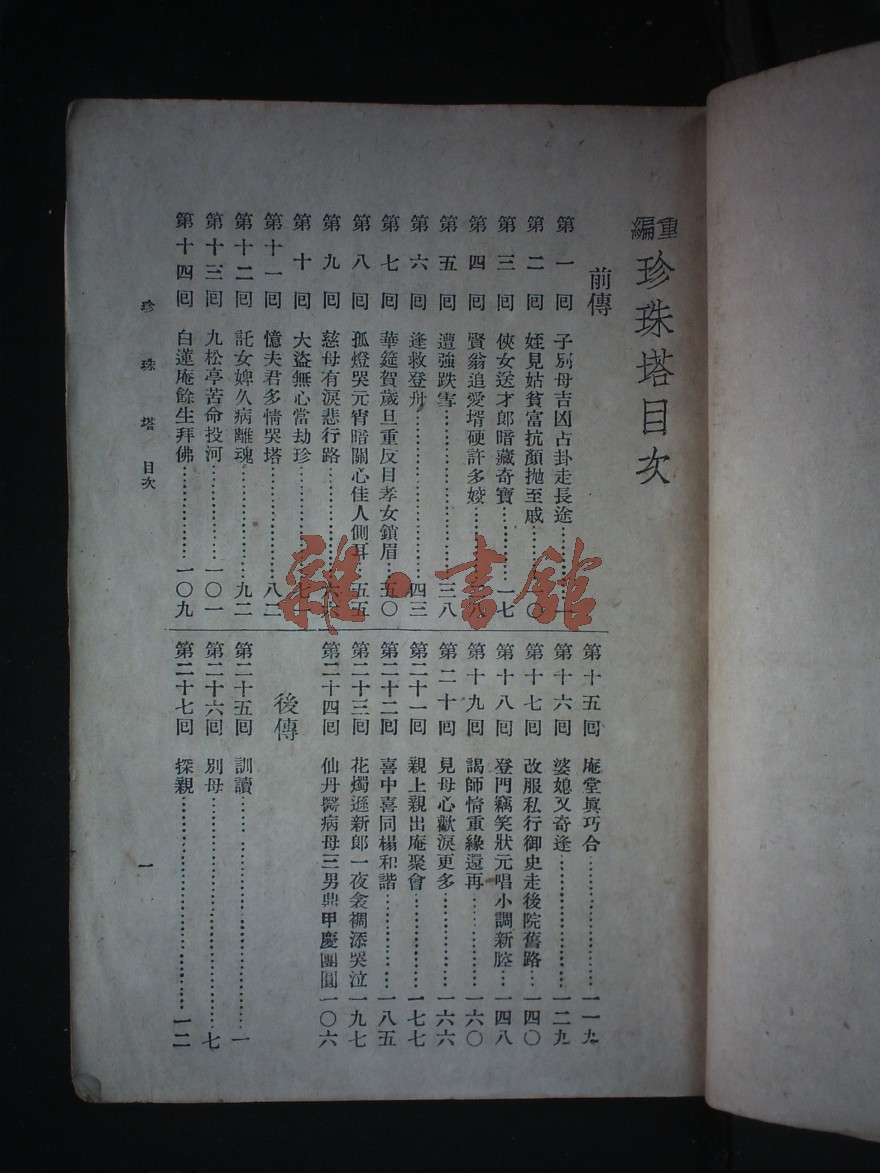 重編珍珠塔目次
前傳
第一回 子別母吉凶占卦走長途………一
第二回 姪見姑貧富抗顏拋至戚………
第三回 俠女送才郎暗藏奇寶………一七
第四回 賢翁追愛壻硬許多姣………
第五回 遭強跌雪………三八
第六回 逢救登舟………四三
第七回 華筵賀歲旦重反目孝女鎖眉…五〇
第八回 孤燈哭元宵暗關心佳人側耳…五五
第九回 慈母有淚悲行路………六六
第十回 大盜無心當劫珍………七一
第十一回 憶夫君多情哭塔………八二
第十二回 託女婢久病離魂………九二
第十三回 九松亭苦命投河………一〇一
第十四回 白蓮庵餘生拜佛………一〇九
第十五回 庵堂眞巧合………一一九
第十六回 婆媳又奇逢………一二九
第十七回 改服私行御史走後院舊路…一四〇
第十八回 登門竊笑狀元唱小調新腔…一四八
第十九回 謁師情重緣還再………一六〇
第二十回 見母心歡淚更多………一六六
第二十一回 親上親出庵聚會………一七七
第二十二回 喜中喜同榻和諧………一八五
第二十三回 花燭遜新郎一夜衾裯添哭泣一九七
第二十四回 仙丹醫病母三男鼎甲慶團圓一〇六
後傳
第二十五回 訓讀………一
第二十六回 別母………七
第二十七回 探親………一二
珍珠塔 目次
一
雜·書館